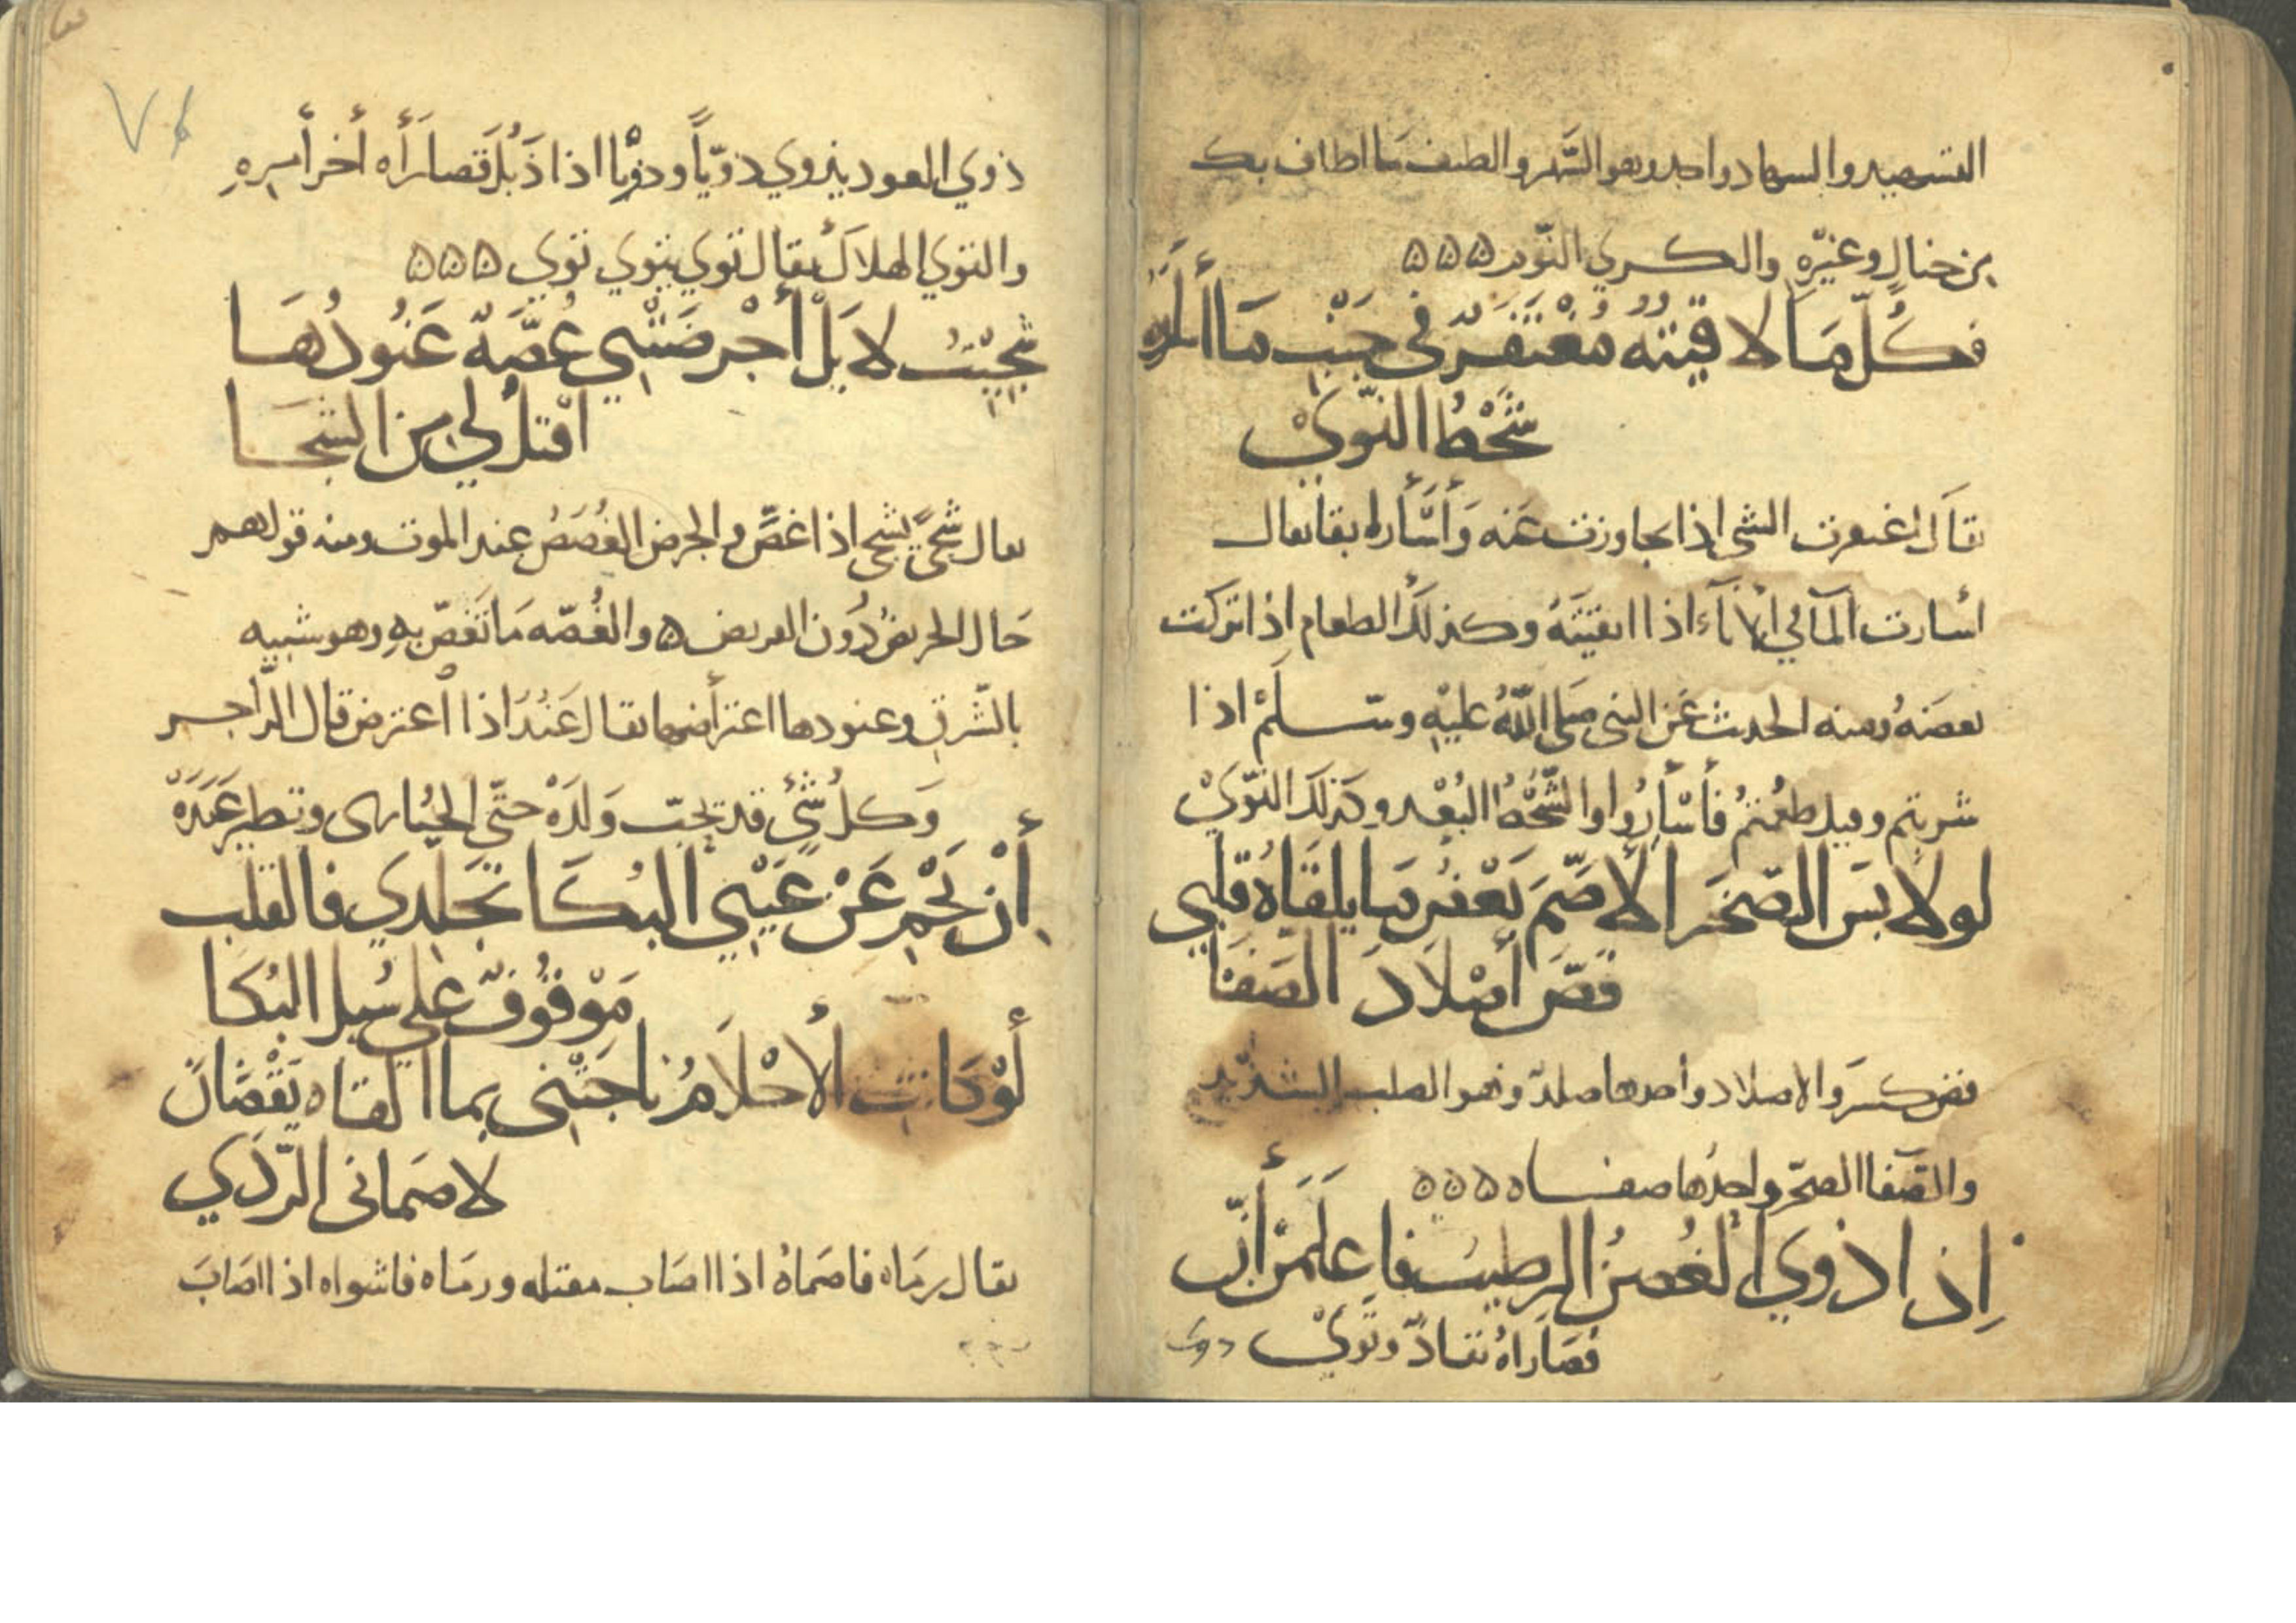 التسهيد والسهاد واحد وهو السَّهر والطيف ما اطاف بك
من خيال وغيره والكري النّوم ه ه ه
فكُلّ مَا لاقيتُهُ مُغْتَفَرٌ في جَنْبِ مَا أَسْأَرَهُ
شَحْطُ النَّويْ
يقال اغتفرت الشي اذا تجاوزت عَنه وَأَسْأَره بقا يقال
أسارت المآ في الانآء اذا ابقيتَهُ وكذلك الطعام اذا تركت
بعضَهُ ومنه الحديث عَن النبي صلي اللّه عليْهِ وسَلمْ اذا
شربتم وقيل طعمتمُ فأَسْأَرُوا والشّحْطُ البُعْد وكذلك النّويْ
لو لابَسَ الصّخرَ الأصَمَّ بَعْضُ مَا يلقَاهُ قلبي
فَضَّ أصْلاَدَ الصَّفَا
فض كسرَ والاصلاد واحدها صلدٌ وهو الصلب الشّديد
والصَّفا الصخر واحدُها صفاه ه ه ه
اِذا ذوي الغُصنُ الرطيبُ فاعلَمَنْ أنّ
قصَاراهُ نفادٌ وتويْ
ذوي
٧٤
ذوي العود يذوي ذويّاً وذويًا اذا ذَبُلَ قصارَأه أخر أمره
والتوي الهلاكُ يقال توي يتوي توي ه ه ه
شَجِيْتُ لا بَلْ أجْرضَتْنِي غُصَّةٌ عَنُودُهَا
اقتلُ لي من الشجا
يقال شجيَ يشجي اذا غصَّ والجرض الغُصَصُ عند الموت ومنه قولهم
حَال الجريضُ دُون القريض ه والغُصّه مَا تَغصّ بِهِ وهو شبيه
بالشّرقِ وعنودها اعتراضها يقال عَنَدَ اذا اعترض قال الرّاجر
وَكلُ شيْءٍ قد تحِبّ وَلَدَهْ حتّي الحُبارى وتطير عَنَدَهْ
أِنْ يَحْمِ عَنْ عَيْنِي البُكَا تَجَلدي فالقلب
مَوْقوُفٌ علي سُبل البُكا
لَوْ كانتِ الأحْلاَمُ ناجَتْني بما القاه يَقْظانَ
لاصْمَاني الرّدَي
يقال رمَاه فاصمَاهُ اذا اصَاب مقتله ورمَاه فاشواه اذا اصَابَ